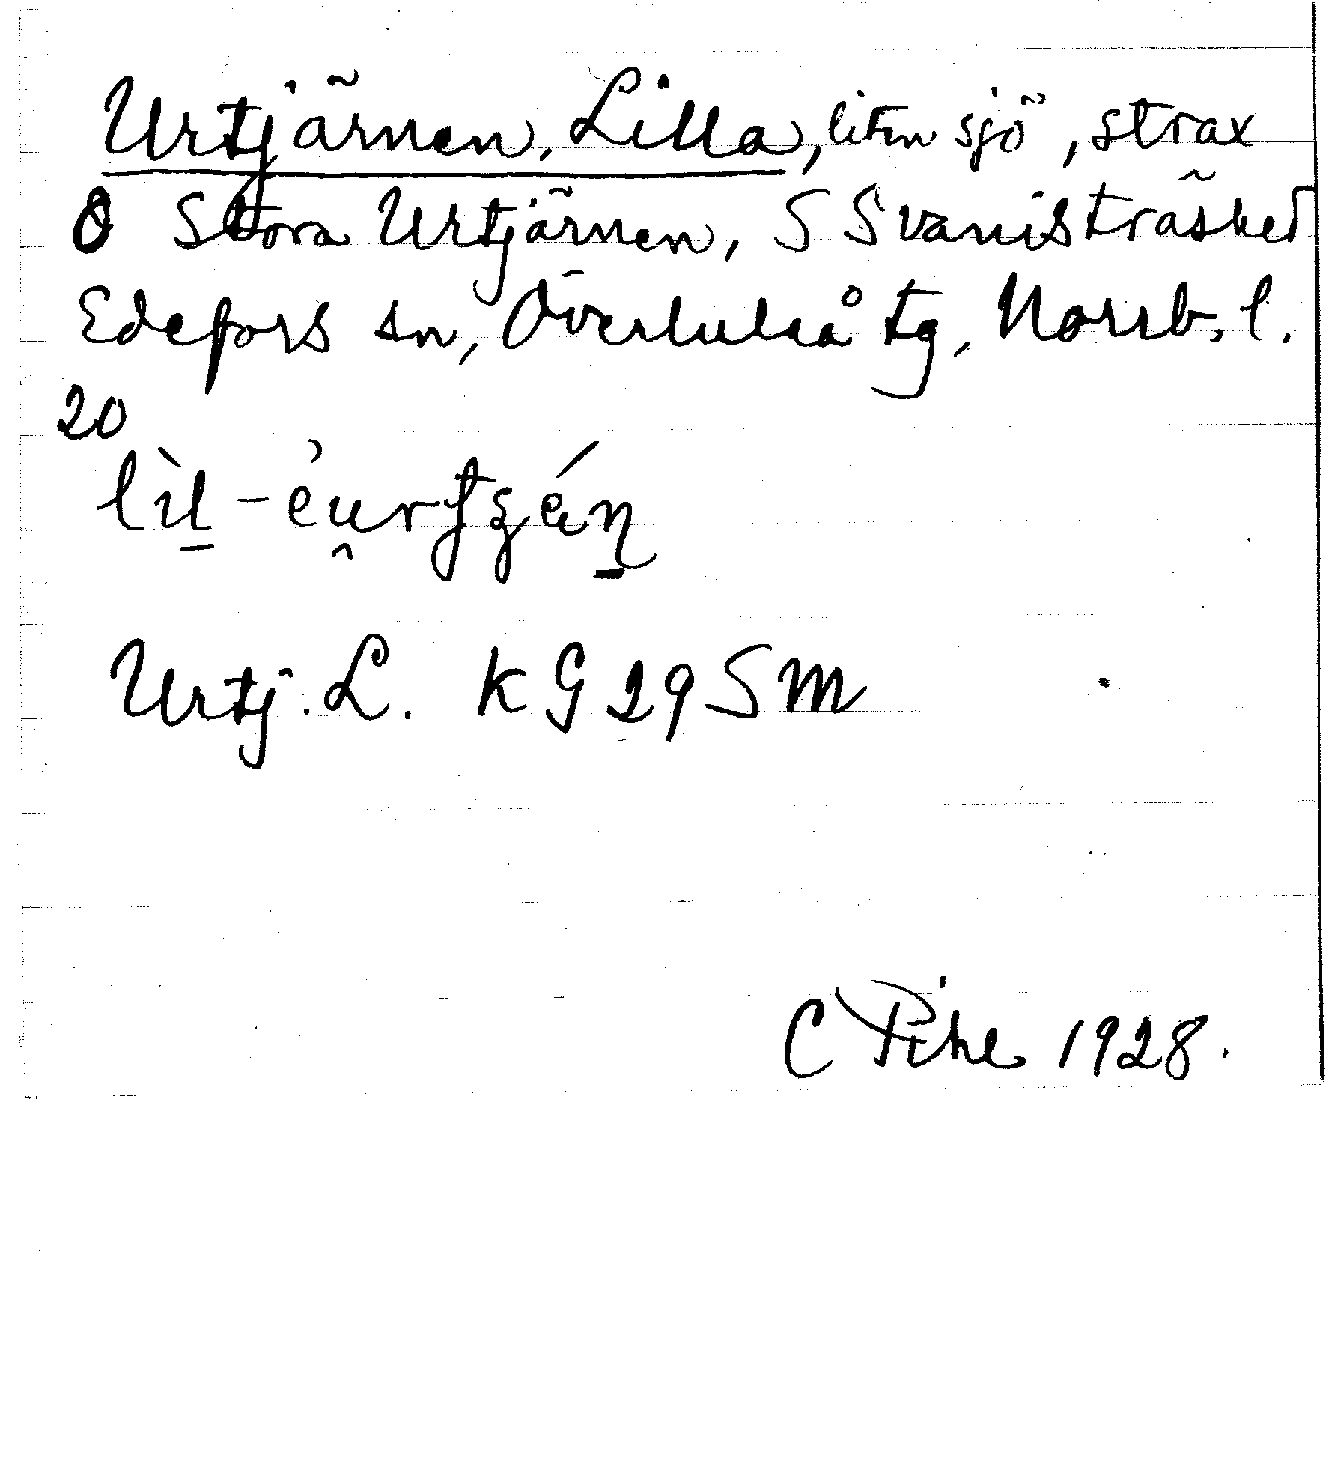 Urtjärnen, Lilla, liten sjö, strax
O Stora Urtjärnen, S Svanisträsket
Edefors sn, Överluleå tg, Norrb. l.
20
Urtj. L. KG 29 SM
C Pihl 1928.